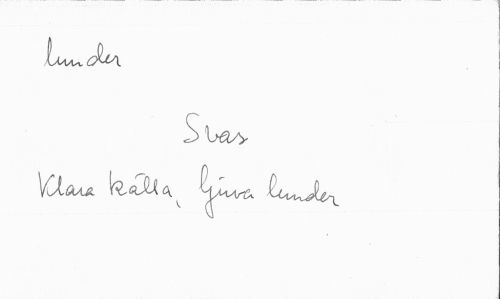 lunder
Svar
Klara källa, ljuva lunder